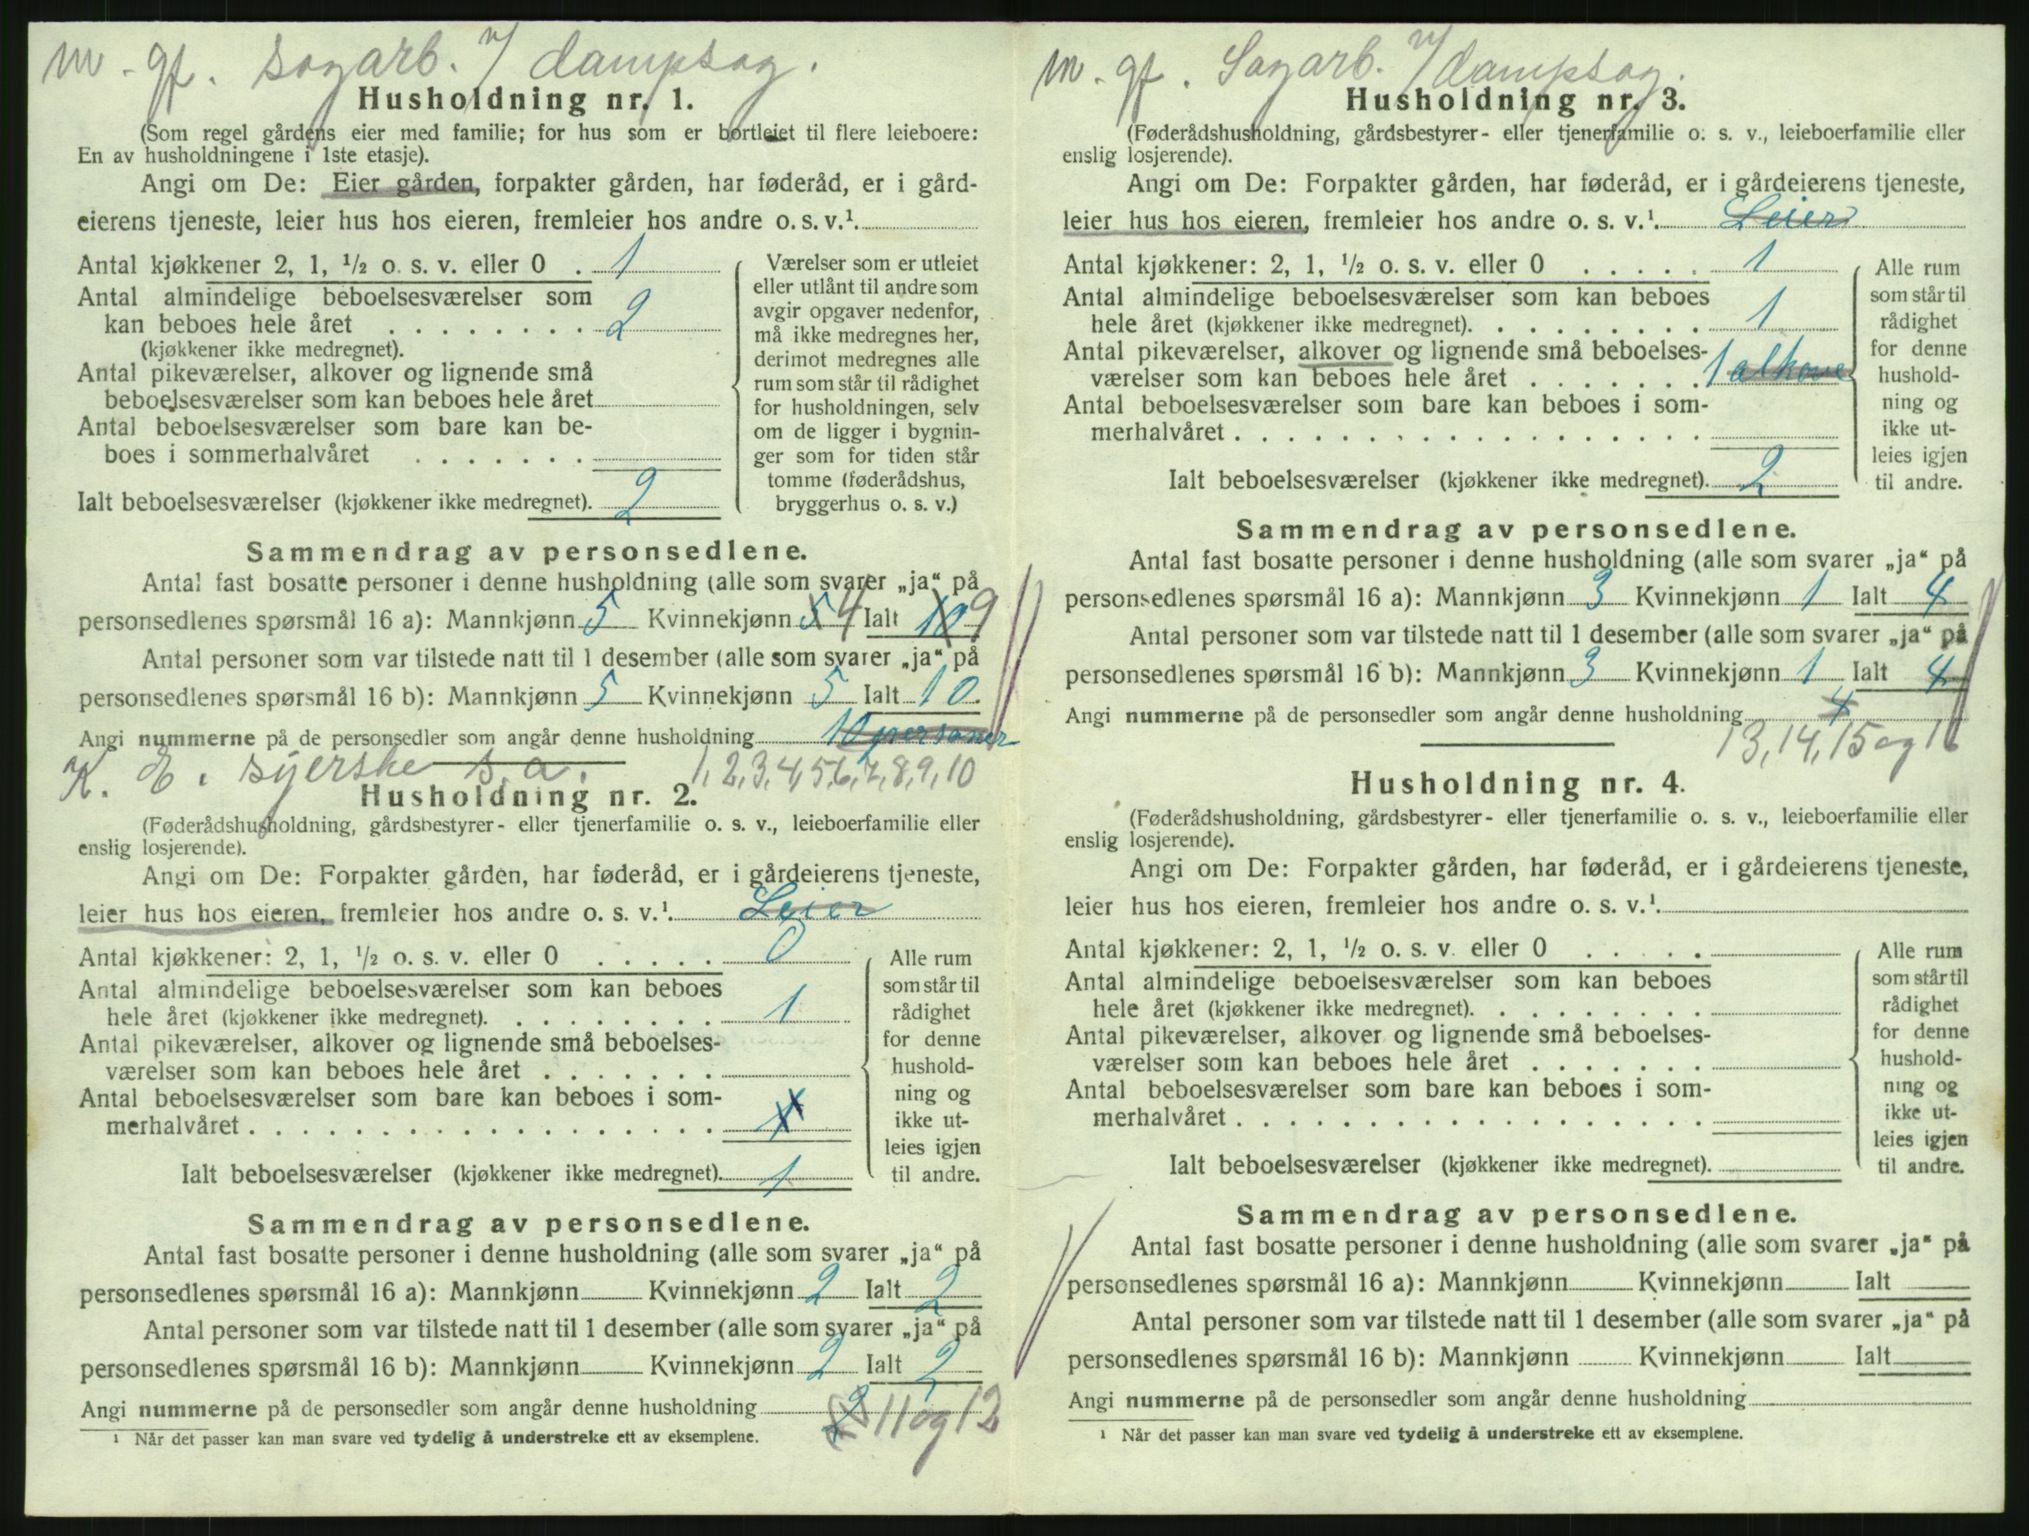 m. gf. Sagarb. v/ dampsag.
Husholdning nr. 1.
(Som regel gårdens eier med familie; for hus som er bortleiet til flere leieboere:
En av husholdningene i 1ste etasje).
Angi om De: Eier gården, forpakter gården, har føderåd, er i gård-
eierens tjeneste, leier hus hos eieren, fremleier hos andre o. s. v.¹.
Antal kjøkkener 2, 1, ½ o. s. v. eller 0 . 1
Antal almindelige beboelsesværelser som
kan beboes hele året . . . . . . . . 2
(kjøkkener ikke medregnet).
Antal pikeværelser, alkover og lignende små
beboelsesværelser som kan beboes hele året
Antal beboelsesværelser som bare kan be-
boes i sommerhalvåret . . . . . . .
Ialt beboelsesværelser (kjøkkener ikke medregnet). 2
Værelser som er utleiet
eller utlånt til andre som
avgir opgaver nedenfor,
må ikke medregnes her,
derimot medregnes alle
rum som står til rådighet
for husholdningen, selv
om de ligger i bygnin-
ger som for tiden står
tomme (føderådshus,
bryggerhus o. s. v.)
Sammendrag av personsedlene.
Antal fast bosatte personer i denne husholdning (alle som svarer „ja“ på
personsedlenes spørsmål 16 a): Mannkjønn 5 Kvinnekjønn 5 4 Ialt 10 9
Antal personer som var tilstede natt til 1 desember (alle som svarer „ja“ på
personsedlenes spørsmål 16 b): Mannkjønn 5 Kvinnekjønn 5 Ialt 10.
Angi nummerne på de personsedler som angår denne husholdning 10 personer
K. E. syerske s. a. 1, 2, 3, 4, 5, 6, 7, 8, 9, 10
Husholdning nr. 2.
(Føderådshusholdning, gårdsbestyrer- eller tjenerfamilie o. s. v., leieboerfamilie eller
enslig losjerende).
Angi om De: Forpakter gården, har føderåd, er i gårdeierens tjeneste,
leier hus hos eieren, fremleier hos andre o. s. v.¹. Leier
Antal kjøkkener: 2, 1, ½ o. s. v. eller 0 . . . . . 0
Antal almindelige beboelsesværelser som kan beboes
hele året (kjøkkener ikke medregnet). . . . . . . . . 1
Antal pikeværelser, alkover og lignende små beboelses-
værelser som kan beboes hele året . . . . . . .
Antal beboelsesværelser som bare kan beboes i som-
merhalvåret . . . . . . . . . . . . . . . . . .
Ialt beboelsesværelser (kjøkkener ikke medregnet). 1
Alle rum
som står til
rådighet
for denne
hushold-
ning og
ikke ut-
leies igjen
til andre.
Sammendrag av personsedlene.
Antal fast bosatte personer i denne husholdning (alle som svarer „ja“ på
personsedlenes spørsmål 16 a): Mannkjønn Kvinnekjønn 2 Ialt 2
Antal personer som var tilstede natt til 1 desember (alle som svarer „ja“ på
personsedlenes spørsmål 16 b): Mannkjønn Kvinnekjønn 2 Ialt 2
Angi nummerne på de personsedler som angår denne husholdning 2 11 og 12
¹ Når det passer kan man svare ved tydelig å understreke ett av eksemplene.
m. gf. Sagarb. v/ dampsag.
Husholdning nr. 3.
(Føderådshusholdning, gårdsbestyrer- eller tjenerfamilie o. s. v., leieboerfamilie eller
enslig losjerende).
Angi om De: Forpakter gården, har føderåd, er i gårdeierens tjeneste,
leier hus hos eieren, fremleier hos andre o. s. v.¹. Leier
Antal kjøkkener: 2, 1, ½ o. s. v. eller 0 . . . . . 1
Antal almindelige beboelsesværelser som kan beboes
hele året (kjøkkener ikke medregnet). . . . . . . . . 1
Antal pikeværelser, alkover og lignende små beboelses-
værelser som kan beboes hele året . . . . . . . 1 alkove
Antal beboelsesværelser som bare kan beboes i som-
merhalvåret . . . . . . . . . . . . . . . . . .
Ialt beboelsesværelser (kjøkkener ikke medregnet). 2
Alle rum
som står til
rådighet
for denne
hushold-
ning og
ikke ut-
leies igjen
til andre.
Sammendrag av personsedlene.
Antal fast bosatte personer i denne husholdning (alle som svarer „ja“ på
personsedlenes spørsmål 16 a): Mannkjønn 3 Kvinnekjønn 1 Ialt 4
Antal personer som var tilstede natt til 1 desember (alle som svarer „ja“ på
personsedlenes spørsmål 16 b): Mannkjønn 3 Kvinnekjønn 1 Ialt 4
Angi nummerne på de personsedler som angår denne husholdning 4
13, 14, 15 og 16
Husholdning nr. 4.
(Føderådshusholdning, gårdsbestyrer- eller tjenerfamilie o. s. v., leieboerfamilie eller
enslig losjerende).
Angi om De: Forpakter gården, har føderåd, er i gårdeierens tjeneste,
leier hus hos eieren, fremleier hos andre o. s. v.¹.
Antal kjøkkener: 2, 1, ½ o. s. v. eller 0 . . . . .
Antal almindelige beboelsesværelser som kan beboes
hele året (kjøkkener ikke medregnet). . . . . . . . .
Antal pikeværelser, alkover og lignende små beboelses-
værelser som kan beboes hele året . . . . . . .
Antal beboelsesværelser som bare kan beboes i som-
merhalvåret . . . . . . . . . . . . . . . . . .
Ialt beboelsesværelser (kjøkkener ikke medregnet).
Alle rum
som står til
rådighet
for denne
hushold-
ning og
ikke ut-
leies igjen
til andre.
Sammendrag av personsedlene.
Antal fast bosatte personer i denne husholdning (alle som svarer „ja“ på
personsedlenes spørsmål 16 a): Mannkjønn Kvinnekjønn Ialt
Antal personer som var tilstede natt til 1 desember (alle som svarer „ja“ på
personsedlenes spørsmål 16 b): Mannkjønn Kvinnekjønn Ialt
Angi nummerne på de personsedler som angår denne husholdning
¹ Når det passer kan man svare ved tydelig å understreke ett av eksemplene.